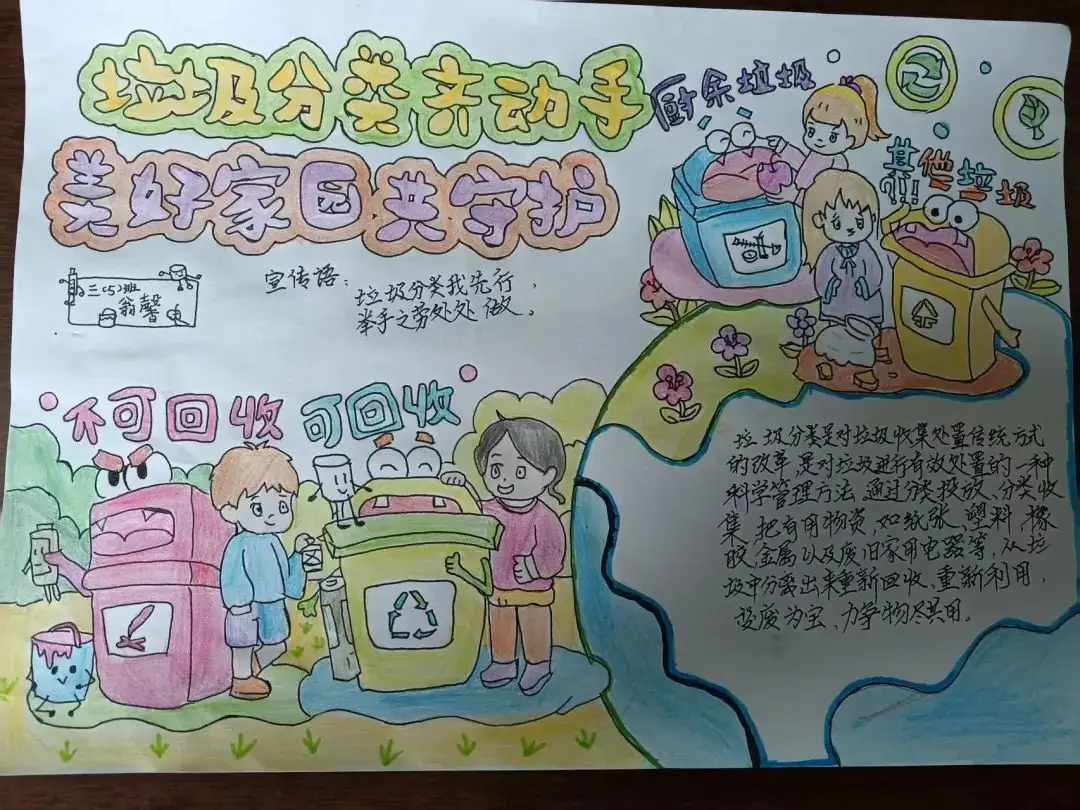 垃圾分类齐动手
美好家园共守护
三(5)班
翁馨
宣传语：
垃圾分类我先行，
举手之劳处处做。
厨余垃圾
其他垃圾
不可回收
可回收
垃圾分类是对垃圾收集处置传统方式
的改革，是对垃圾进行有效处置的一种
科学管理方法。通过分类投放、分类收
集，把有用物资，如纸张、塑料、橡
胶,金属以及废旧家用电器等，从垃
圾中分离出来重新回收、重新利用，
变废为宝、力争物尽其用。